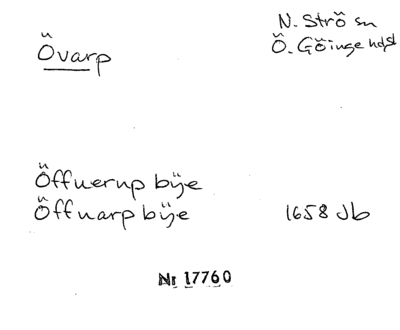 Övarp
N. Strö sn
Ö. Göinge hdsl
Öffuerup bÿe
Öffuarp bÿe 1658 Jb
Nr 17760